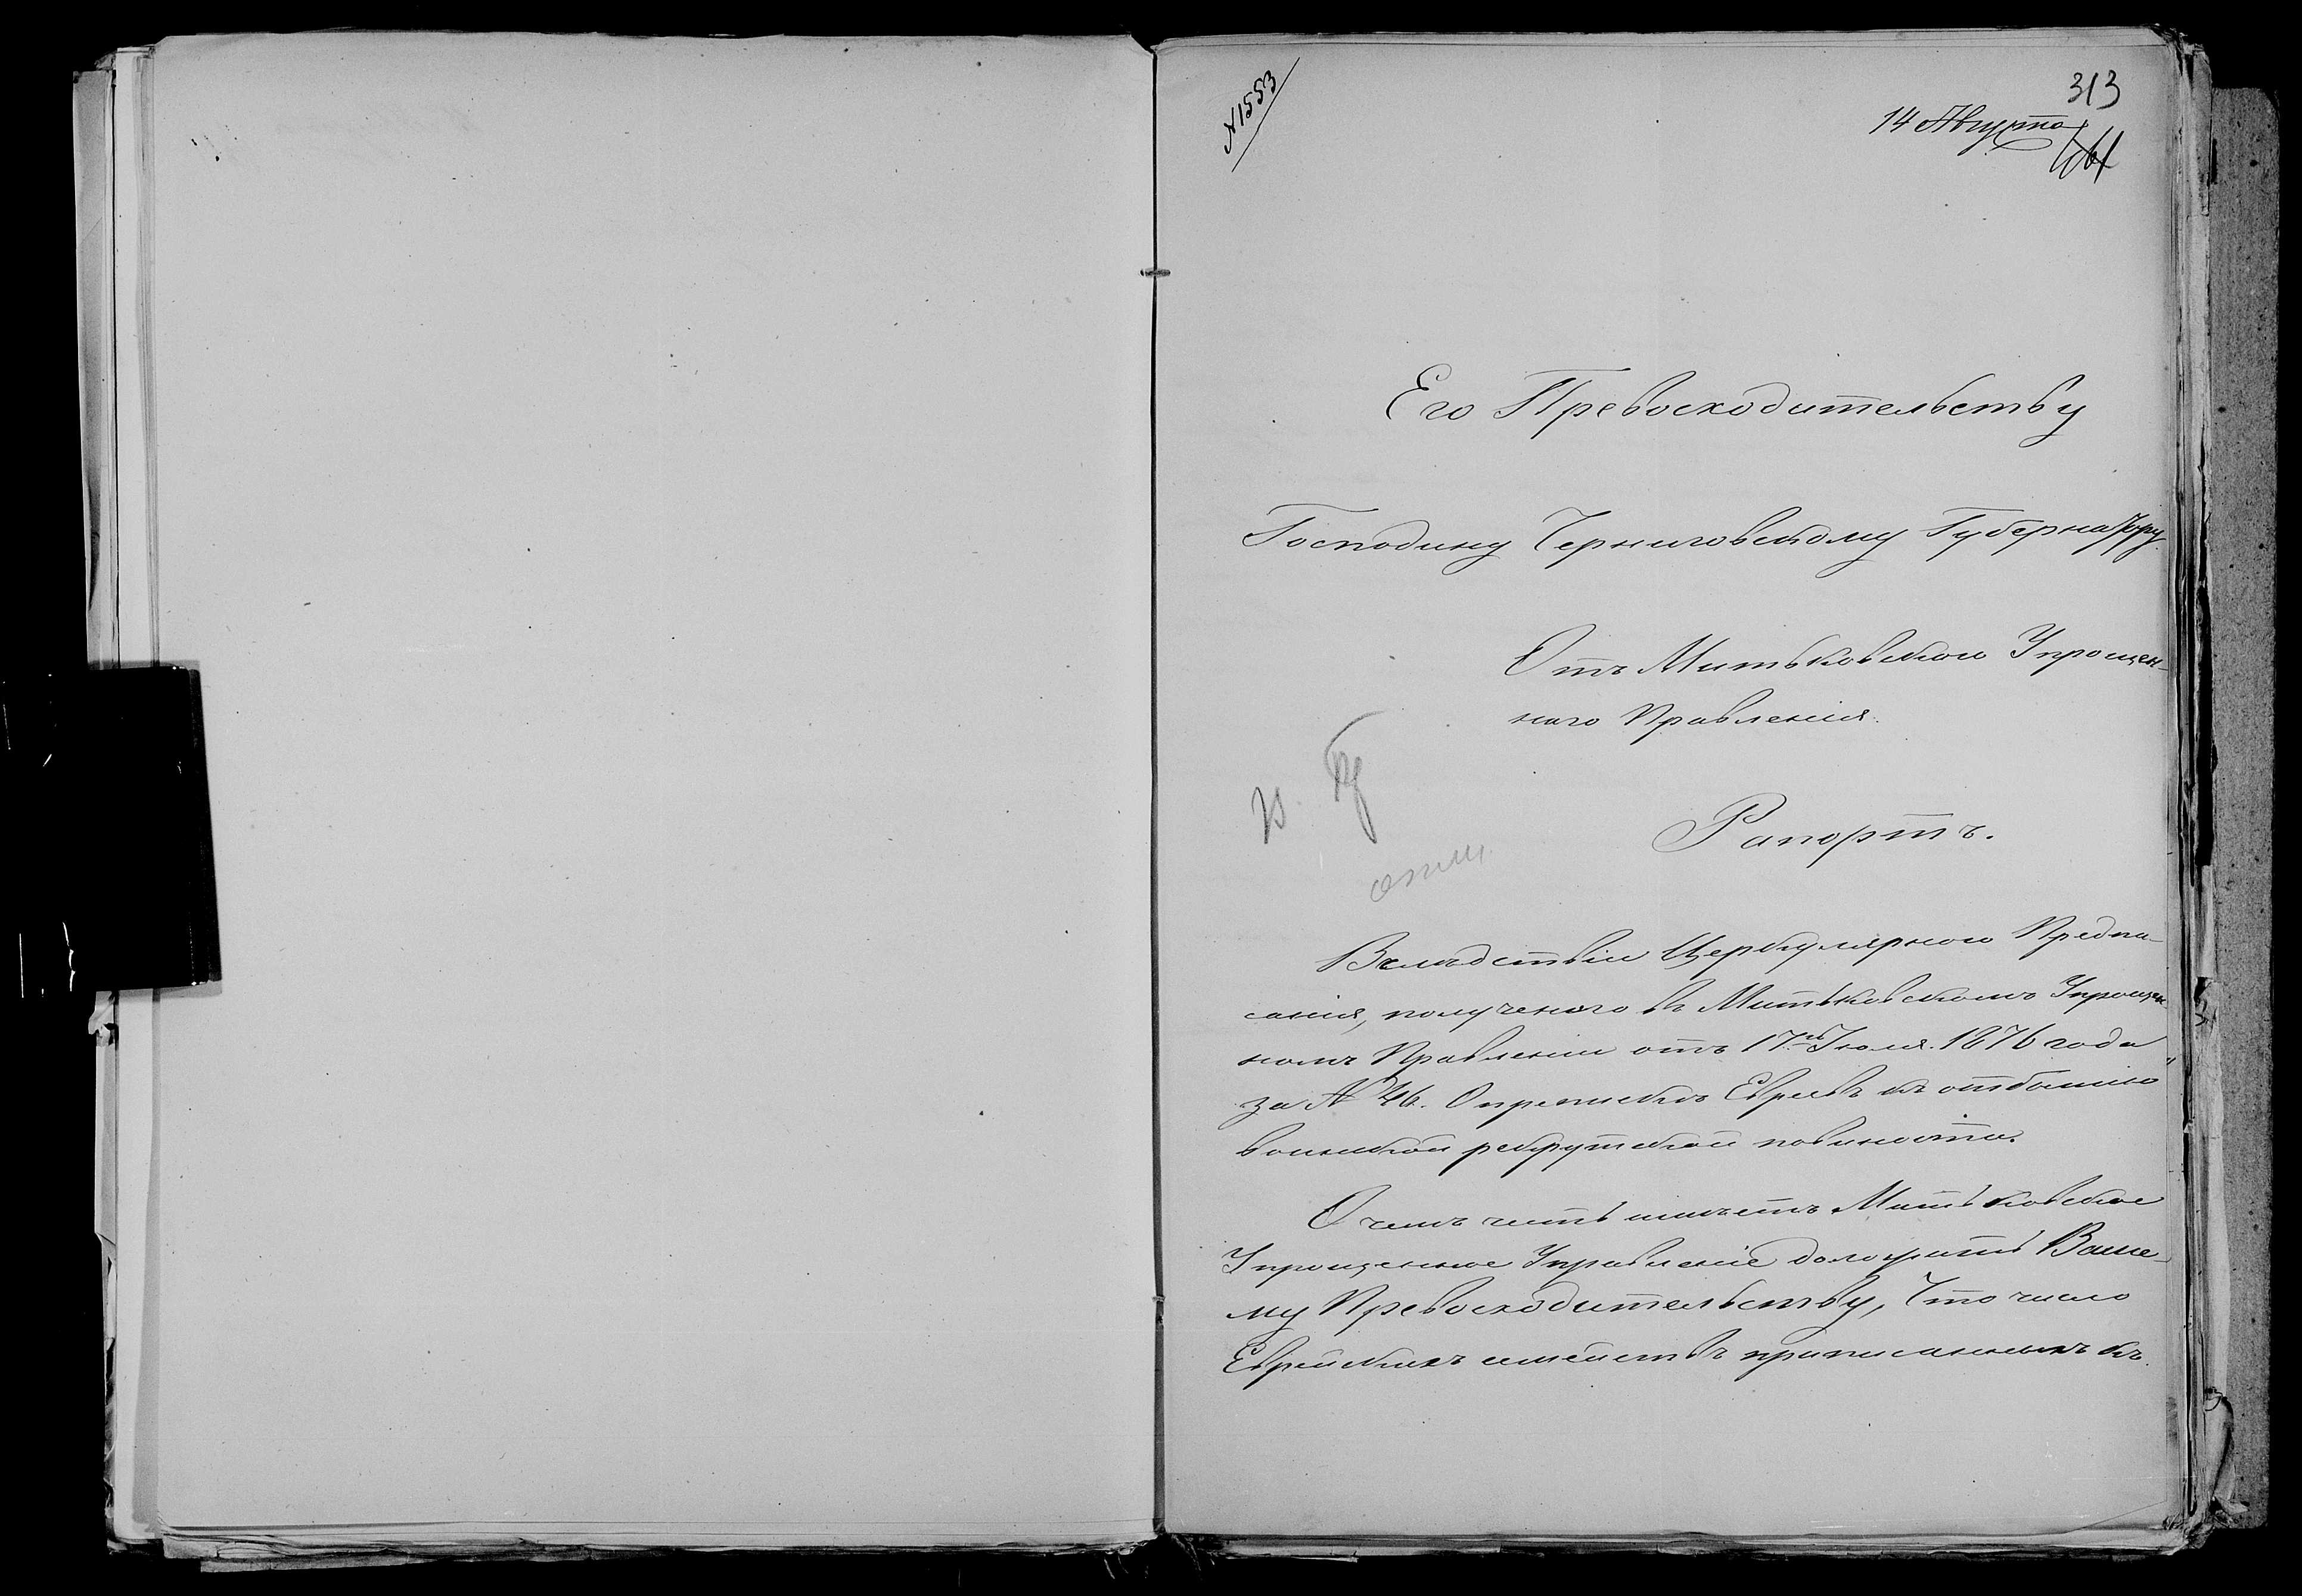 № 1553
313
14 Августа
Его Превосходительству
Господину Черниговскому Губернатору
Отъ Митьковскаго Упрощен-
наго Правленія.
Рапортъ.
Вслѣдствіи Церкулярного Предпи-
санія, полученаго въ Митьковскомъ Упрощен-
номъ Правленіи отъ 17го Іюля 1876 года
за № 46. О приписки Евреевъ къ отбытію
воинской рекрутской повиности.
О чемъ честь имѣетъ Митьковское
Упрощенное Управленіе доложить Ваше-
му Превосходительству, Что число
Еврейскихъ семействъ приписанныхъ къ